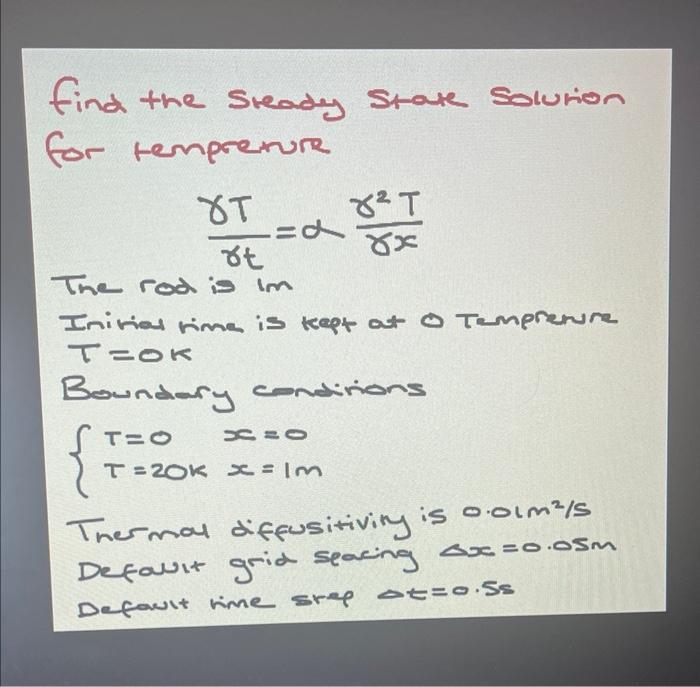 find the Steady State Solution
for temprenure
γT/γt = α γ²T/γx
The rod is 1m
Initial time is kept at 0 Temprenure
T=0K
Boundary conditions
{ T=0 x=0
T=20K x=1m
Thermal diffusitivity is 0.01m²/s
Default grid spacing Δx=0.05m
Default time step Δt=0.5s